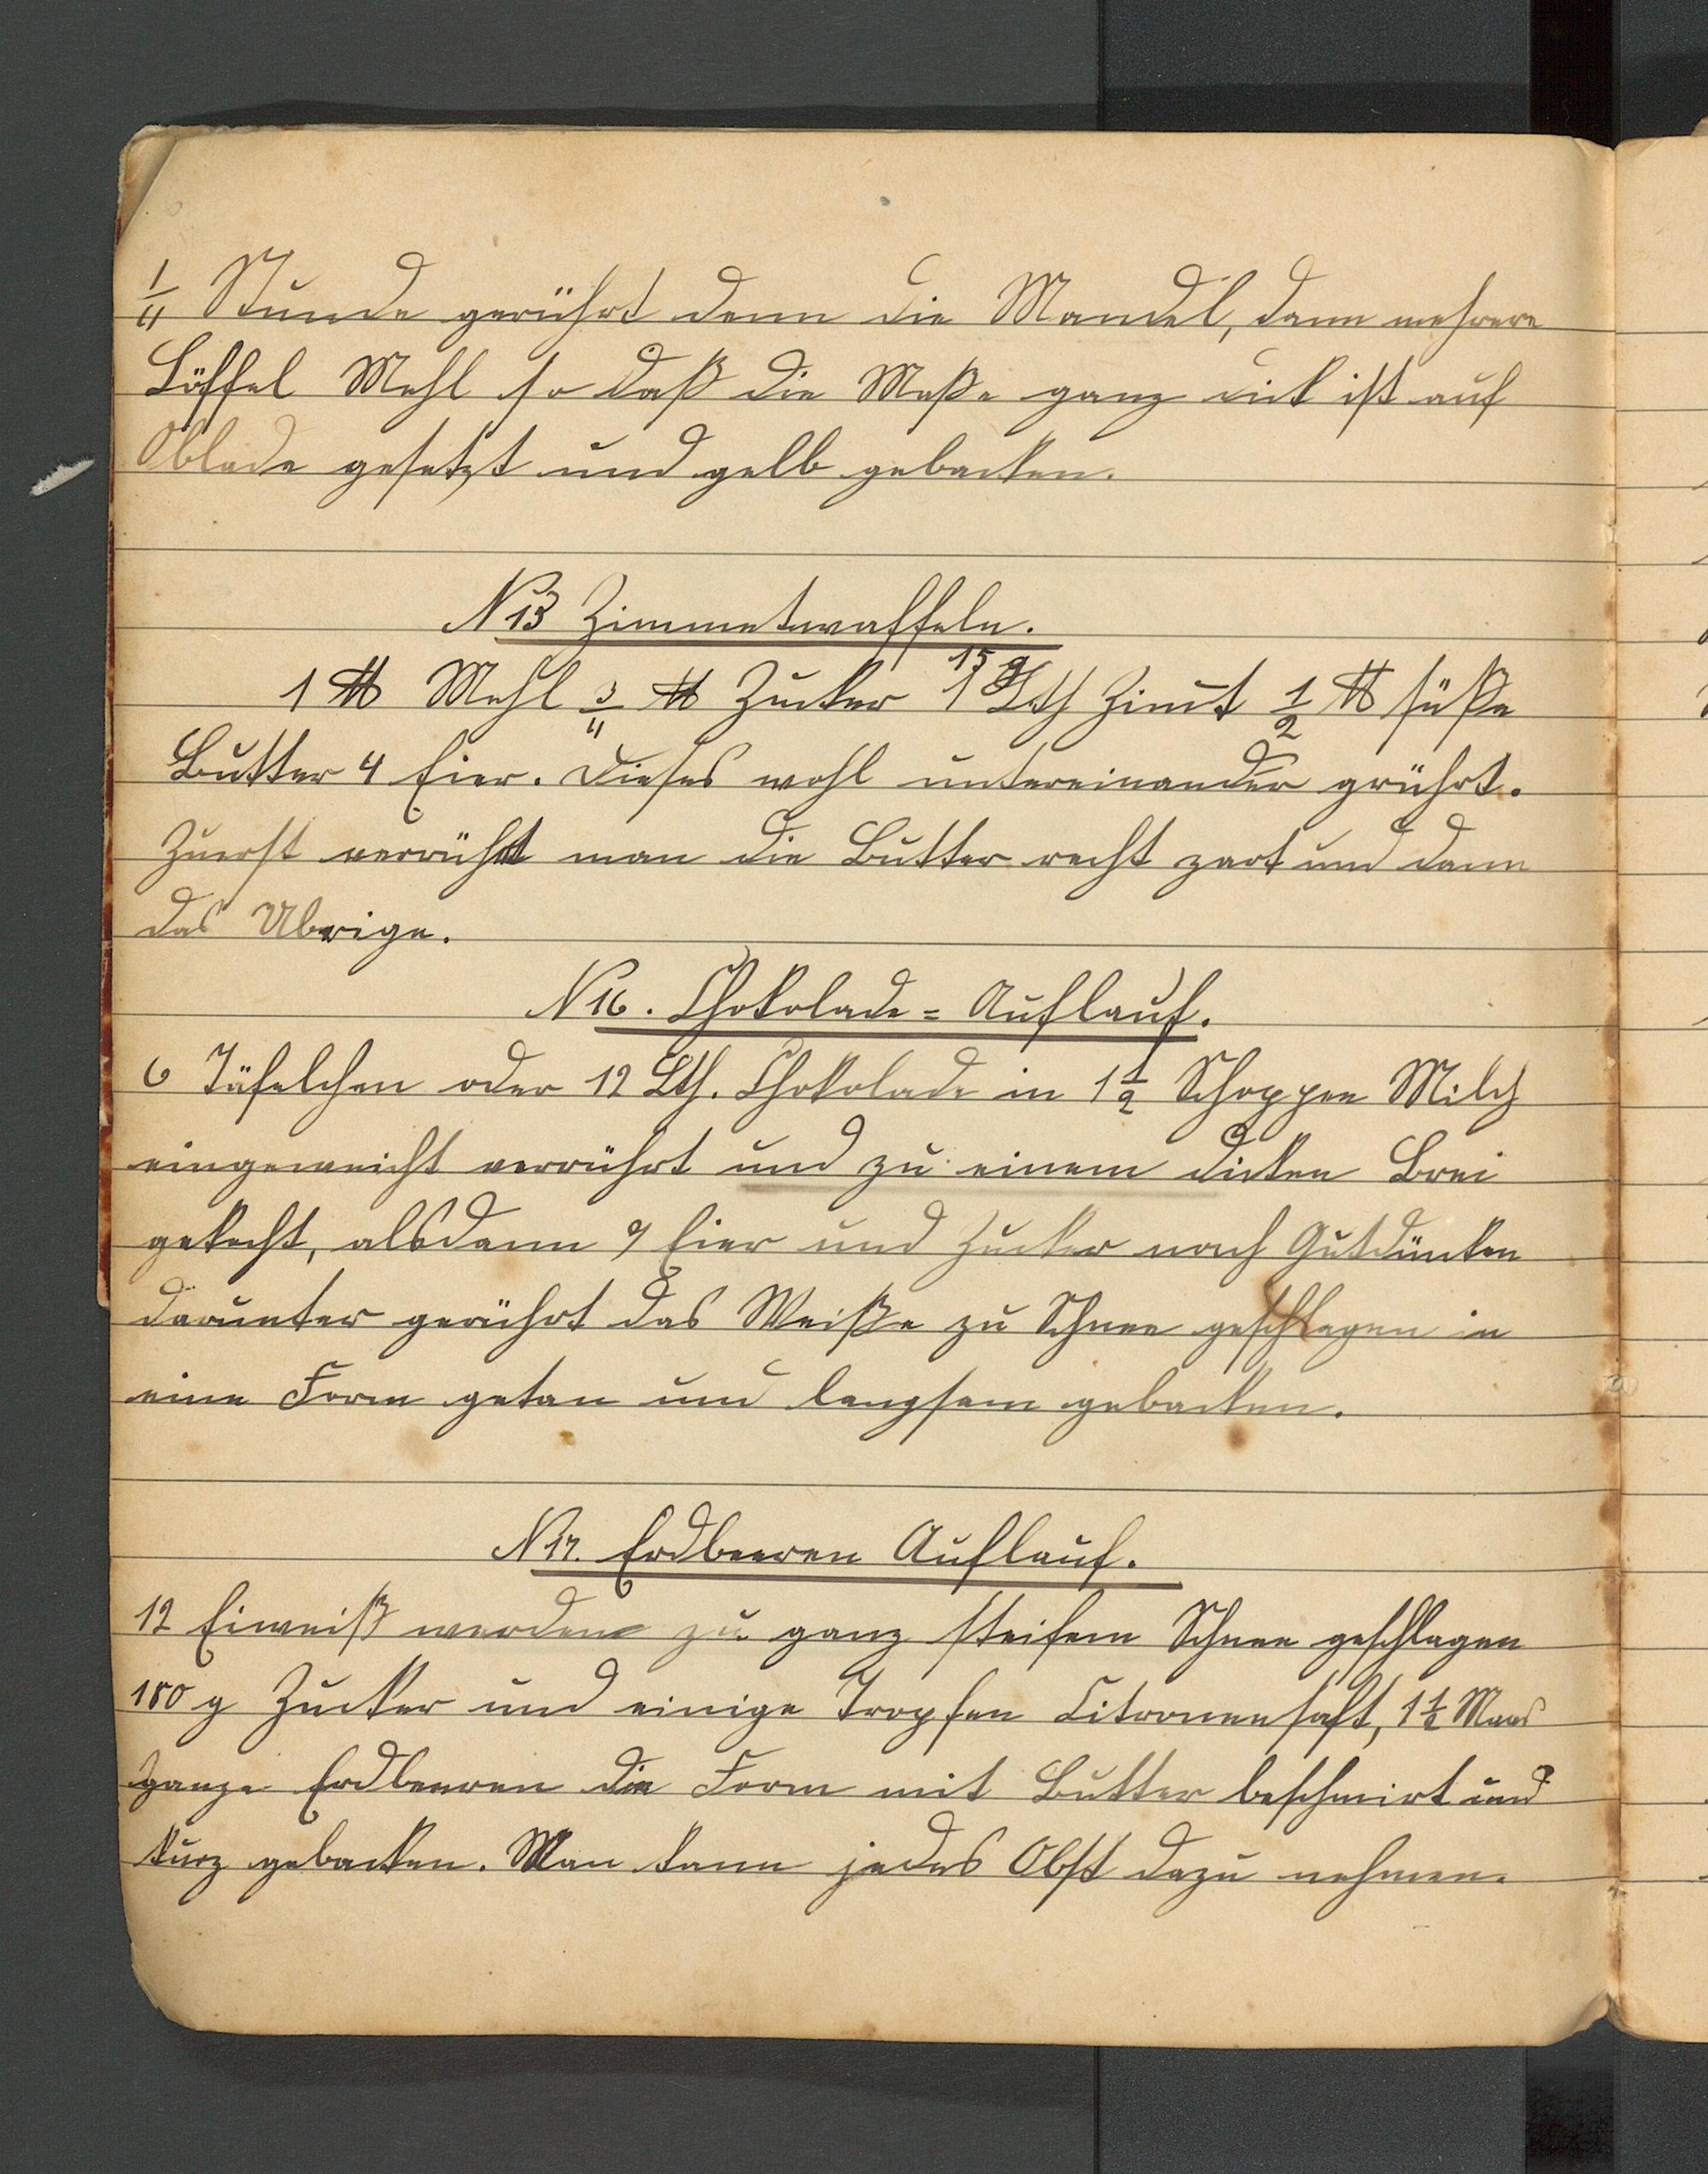 1/4 Stunde gerührt dann die Mandel, dann mehrere
Löffel Mehl so daß die Maße ganz dick ist auf
Oblade gesetzt und gelb gebacken.
N 15 Zimmetwaffeln.
15 g
1 ℔ Mehl 3/4 ℔ Zucker 1 Lth Zimt 1/2 ℔ süße
Butter 4 Eier. Dieses wohl untereinander grührt.
Zuerst verrührt man die Butter recht zart und dann
das Ubrige.
N 16. Chokolade = Auflauf.
6 Täfelchen oder 12 Lth. Chokolade in 1 1/2 Schoppen Milch
eingeweicht verrührt und zu einem dicken Brei
gekocht, alsdann 9 Eier und Zucker nach Gutdünken
darunter gerührt das Weiße zu Schnee geschlagen in
eine Form getan und langsam gebacken.
N 17. Erdbeeren Auflauf.
12 Eiweiß werden zu ganz steifem Schnee geschlagen
180 g Zucker und einige Tropfen Citronensaft, 1 1/2 Maas
ganze Erdbeeren die Form mit Butter beschmirt und
kurz gebacken. Man kann jedes Obst dazu nehmen.